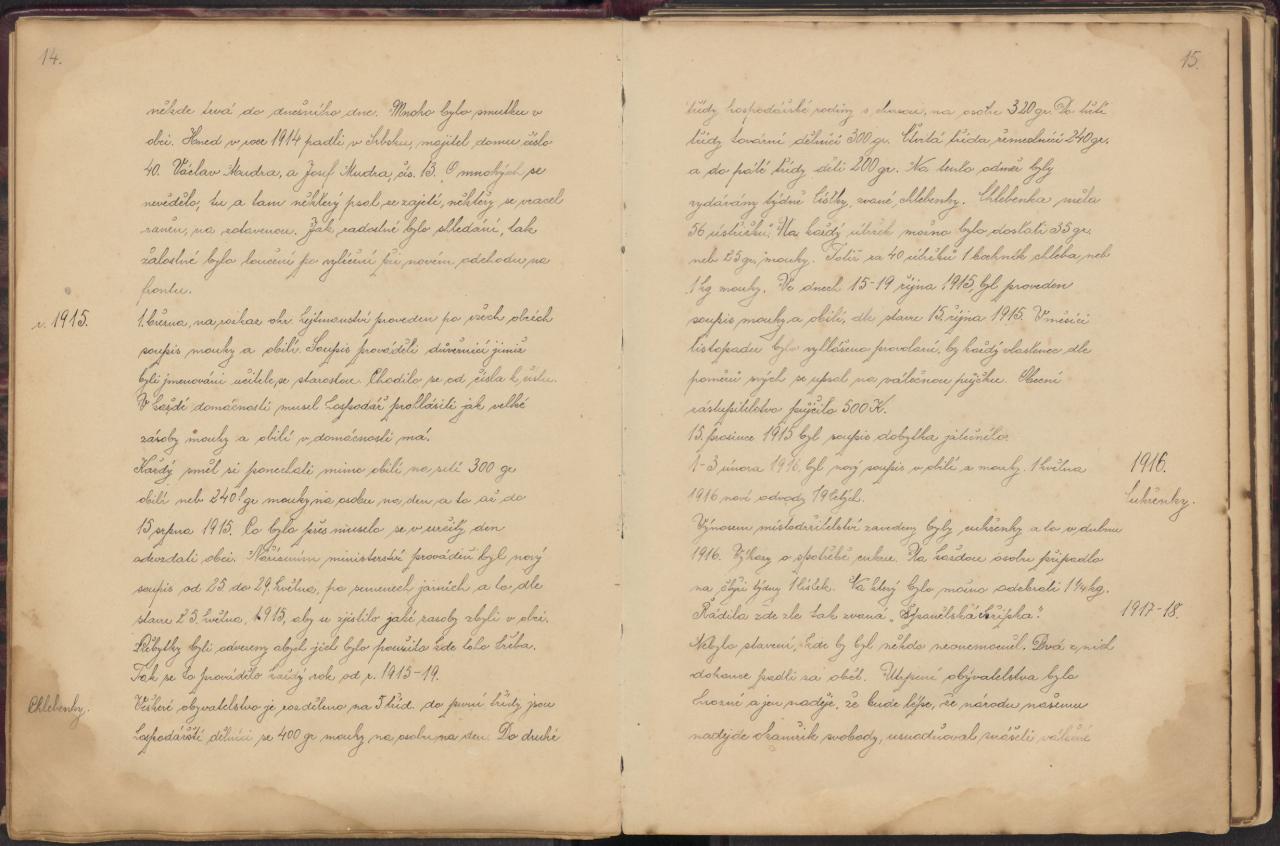 14.
někde trvá do dnešního dne. Mnoho bylo smutku v
obci. Hned v roce 1914 padli v Srbsku, majitel domu číslo
40. Václav Mudra, a Josef Mudra, čís. 13. O mnohých se
nevědělo, tu a tam některý psal, se zajetí, některý se vracel
raněn, na zotavenou. Jak radostné bylo shledání, tak
žalostné bylo loučení po vyléčení při novém odchodu na
frontu.
r. 1915.
1. března, na rozkaz okr. hejtmanství proveden po všech obcích
soupis mouky a obilí. Soupis prováděli důvěrníci jimiž
byli jmenováni učitele, se starostou. Chodilo se od čísla k číslu.
V každé domácnosti musel hospodář prohlásiti jak velké
zásoby mouky a obilí v domácnosti má.
Každý směl si ponechati mimo obilí na setí 300 gr
obilí neb 240 gr mouky, na osobu na den a to až do
15 srpna 1915. Co bylo přes muselo se v určitý den
odevzdati obci. Nařízením ministerství prováděn byl nový
soupis od 25. do 29. května, po semenech jarních a to dle
stavu 25. května, 1915, aby se zjistilo jaké, zásoby zbyli v obci.
Přebytky byli odvezeny abych jich bylo použito kde toho třeba.
Tak se to provádělo každý rok od r. 1915-19.
Chlebenky.
Veškeré obyvatelstvo je rozděleno na 5 tříd. do první třídy jsou
hospodářští dělníci se 400 gr mouky na osobu na den. Do druhé
15.
třídy hospodářské rodiny s chasou, na osobu 320 gr. Do třetí
třídy tovární dělníci 300 gr. Čtvrtá třída, řemeslníci 240 gr.
a do páté třídy děti 200 gr. Na tento odměr byly
vydávány týdně lístky, zvané chlebenky. Chlebenka měla
56 ústřižků. Na každý útržek možno bylo dostati 35 gr.
neb 25 gr, mouky. Totiž za 40 útržků 1 bochník chleba, neb
1 kg mouky. Ve dnech 15-19 října 1915, byl proveden
soupis mouky a obilí, dle stavu 15. října 1915. V měsíci
listopadu bylo vyhlášeno provolání, by každý vlastenec dle
poměrů svých se upsal na válečnou půjčku. Obecní
zástupitelstvo půjčilo 500 K.
15. prosince 1915 byl soupis dobytka jatečního.
1916.
1-3 února 1916. byl nový soupis v obilí a mouky. 1 května
1916 nové odvody 19 letých.
Cukřenky.
Výnosem místodržitelství zavedeny byly, cukřenky a to v dubnu
1916. Výkazy o spotřebě cukru. Na každou osobu připadlo
na čtyři týdny 1 lístek. Na který bylo možno odebrati 1 1/4 kg.
1917-18.
Řádila zde zle tak zvaná „Španělská chřipka".
Nebylo stavení, kde by byl někdo neonemocněl. Dvá z nich
dokonce padli za oběť. Utrpení obyvatelstva bylo
hrozné a jen naděje, že bude lépe, že národu našemu
nadejde okamžik svobody, usnadňoval snášeti válečné